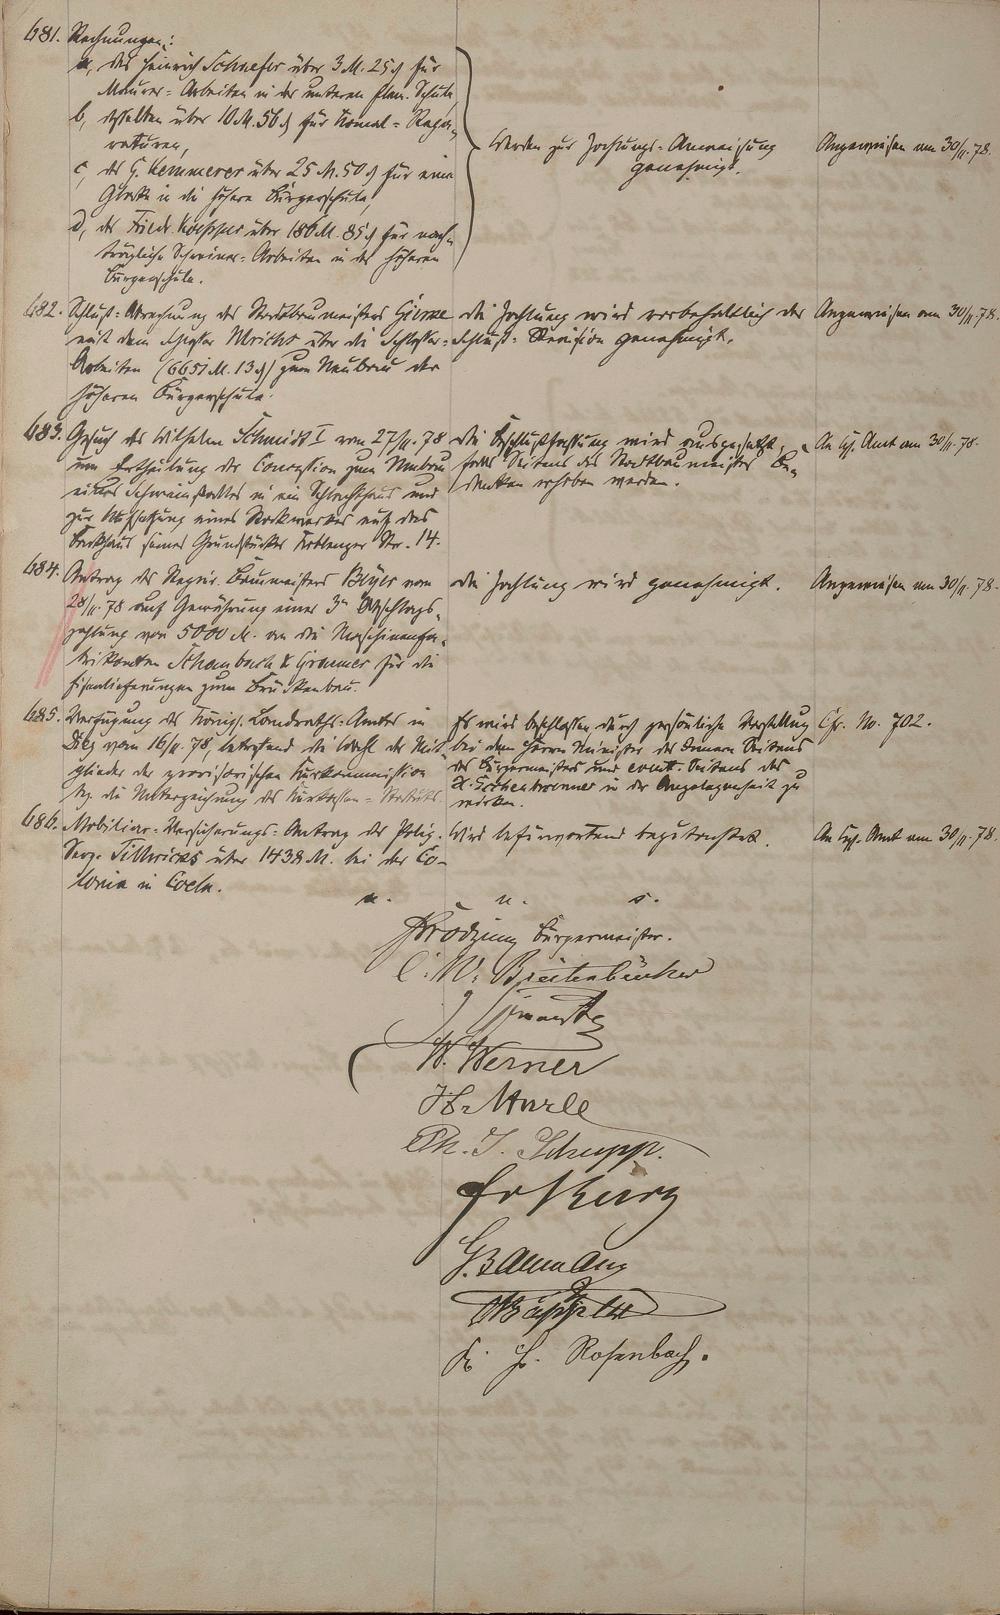 681. Rechnungen:
a, des Heinrich Schaefer über 3 M. 25 ₰ für
Maurer-Arbeiten in der unteren Elem. Schule,
b, desselben über 10 M. 56 ₰ für Kanal-Repa-
raturen,
c, des G. Kemmerer über 25 M. 50 ₰ für eine
Glocke in die höhere Bürgerschule,
d, des Friedr. über 186 M. 85 ₰ für nach-
trägliche Schreiner-Arbeiten in der höheren
Bürgerschule.
Werden zur Zahlungs-Anweisung
genehmigt.
Angewiesen am 30/11. 78.
682. Schluß-Abrechnung des Stadtbaumeisters
mit dem Schlosser Ulrichs über die Schlosser-
Arbeiten (6651 M. 13 ₰) zum Neubau der
höheren Bürgerschule.
Die Zahlung wird vorbehaltlich der
Schluß-Revision genehmigt.
Angewiesen am 30/11. 78.
683. Gesuch des Wilhelm Schmidt I vom 27/11. 78
um Ertheilung der Concession zum Umbau
eines Schweinestalles in ein Schlachthaus und
zur Aufsetzung eines Stockwerkes auf das
Backhaus seines Grundstückes Coblenzer Str. 14.
Die Beschlußfassung wird ausgesetzt,
falls Seitens des Stadtbaumeisters Be-
denken erhoben werden.
An Kgl. Amt am 30/11. 78.
684. Antrag des Regier. Baumeisters Beyer vom
28/11. 78 auf Gewährung einer 3n Abschlags-
zahlung von 5000 M. an die Maschinenfa-
brikanten Schambach & Graemer für die
Eisenlieferungen zum Brückenbau.
Die Zahlung wird genehmigt.
Angewiesen am 30/11. 78.
685. Verfügung des Königl. Landraths-Amtes in
Diez vom 16/11. 78, betreffend die Wahl der Mit-
glieder der provisorischen Kurkommission
bez. die Unterzeichnung des Kurkassen-Statuts
Es wird beschlossen, durch persönliche Vorstellung
bei dem Herrn Minister des Innern Seitens
des Bürgermeisters und event. Seitens des
H. in der Angelegenheit zu
wirken.
Cfr. No. 702.
686. Mobiliar-Versicherungs-Antrag des Poliz.
Serg. über 1438 M. bei der Co-
lonia in Coeln.
Wird befürwortend begutachtet.
An Kgl. Amt am 30/11. 78.
u. u. s.
Bürgermeister.
C. W. Breitenbücher
W. Werner
Ph. J. Schupp.
Fr Kurz
G. Baumann
Rosenbach.